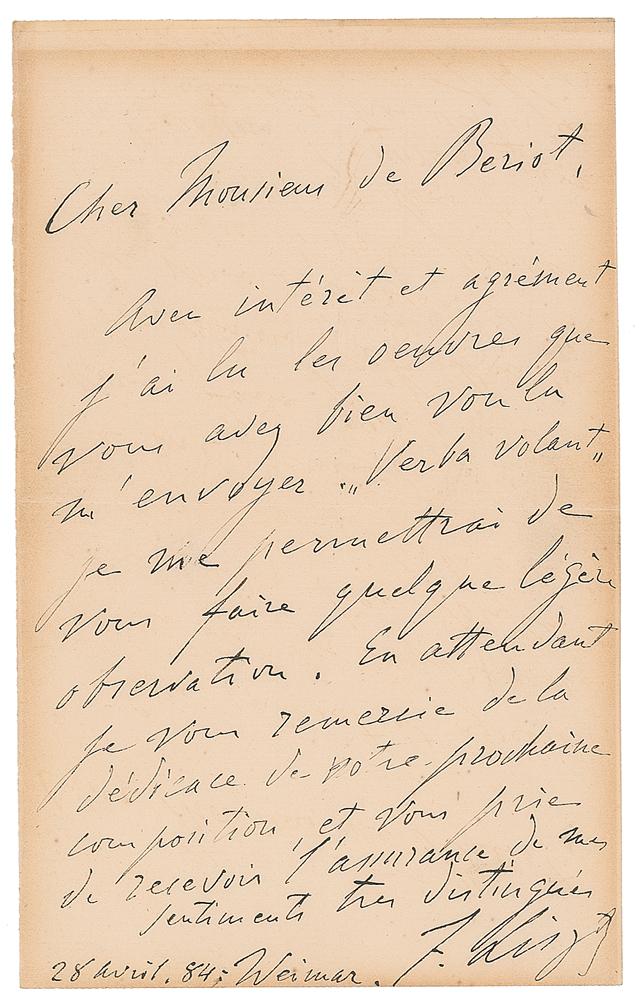 Cher Monsieur de Beriot,
Avec intérêt et agrément
j'ai lu les oeuvres que
vous avez bien voulu
m'envoyer. „Verba volant„
je me permettrai de
vous faire quelque légère
observation. En attendant
je vous remercie de la
dédicace de votre prochaine
composition, et vous prie
de recevoir l'assurance de mes
sentiments très distingués
F. Liszt
28 avril. 84: Weimar.